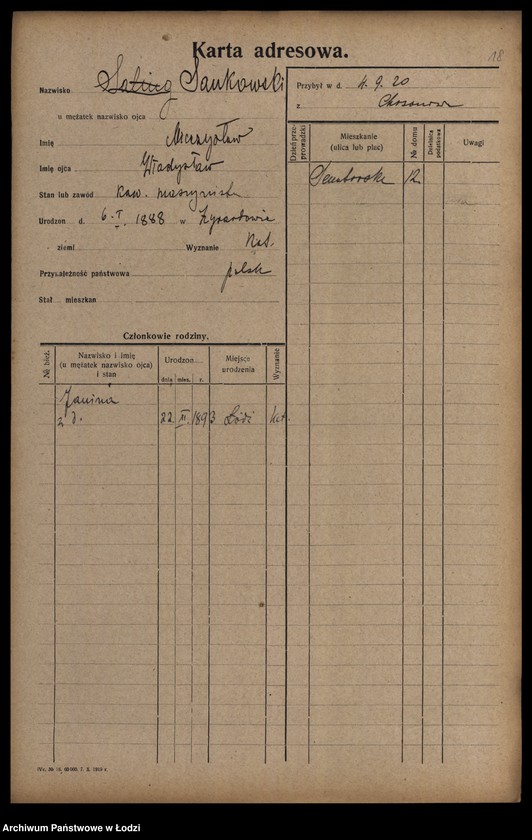 18
Karta adresowa.
Nazwisko Sankowski
u mężatek nazwisko ojca
Imię Mieczysław
Imię ojca Władysław
Stan lub zawód kaw. maszynista
Urodzon d. 6. I 1888 w Żyrardowie
ziemi Wyznanie Kat.
Przynależność państwowa polsk
Stał mieszkan
Przybył w d. 4. 9. 20
z
Dzień przeprowadzki
Mieszkanie (ulica lub plac)
№ domu
Dzielnica podatkowa
Uwagi
Senatorska 12
Członkowie rodziny.
№ bież.
Nazwisko i imię (u mężatek nazwisko ojca) i stan
Urodzon
dnia mies. r.
Miejsce urodzenia
Wyznanie
Janina
22 1893 Łódź kat.
Archiwum Państwowe w Łodzi